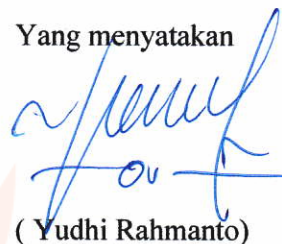 Yang menyatakan
( Yudhi Rahmanto)